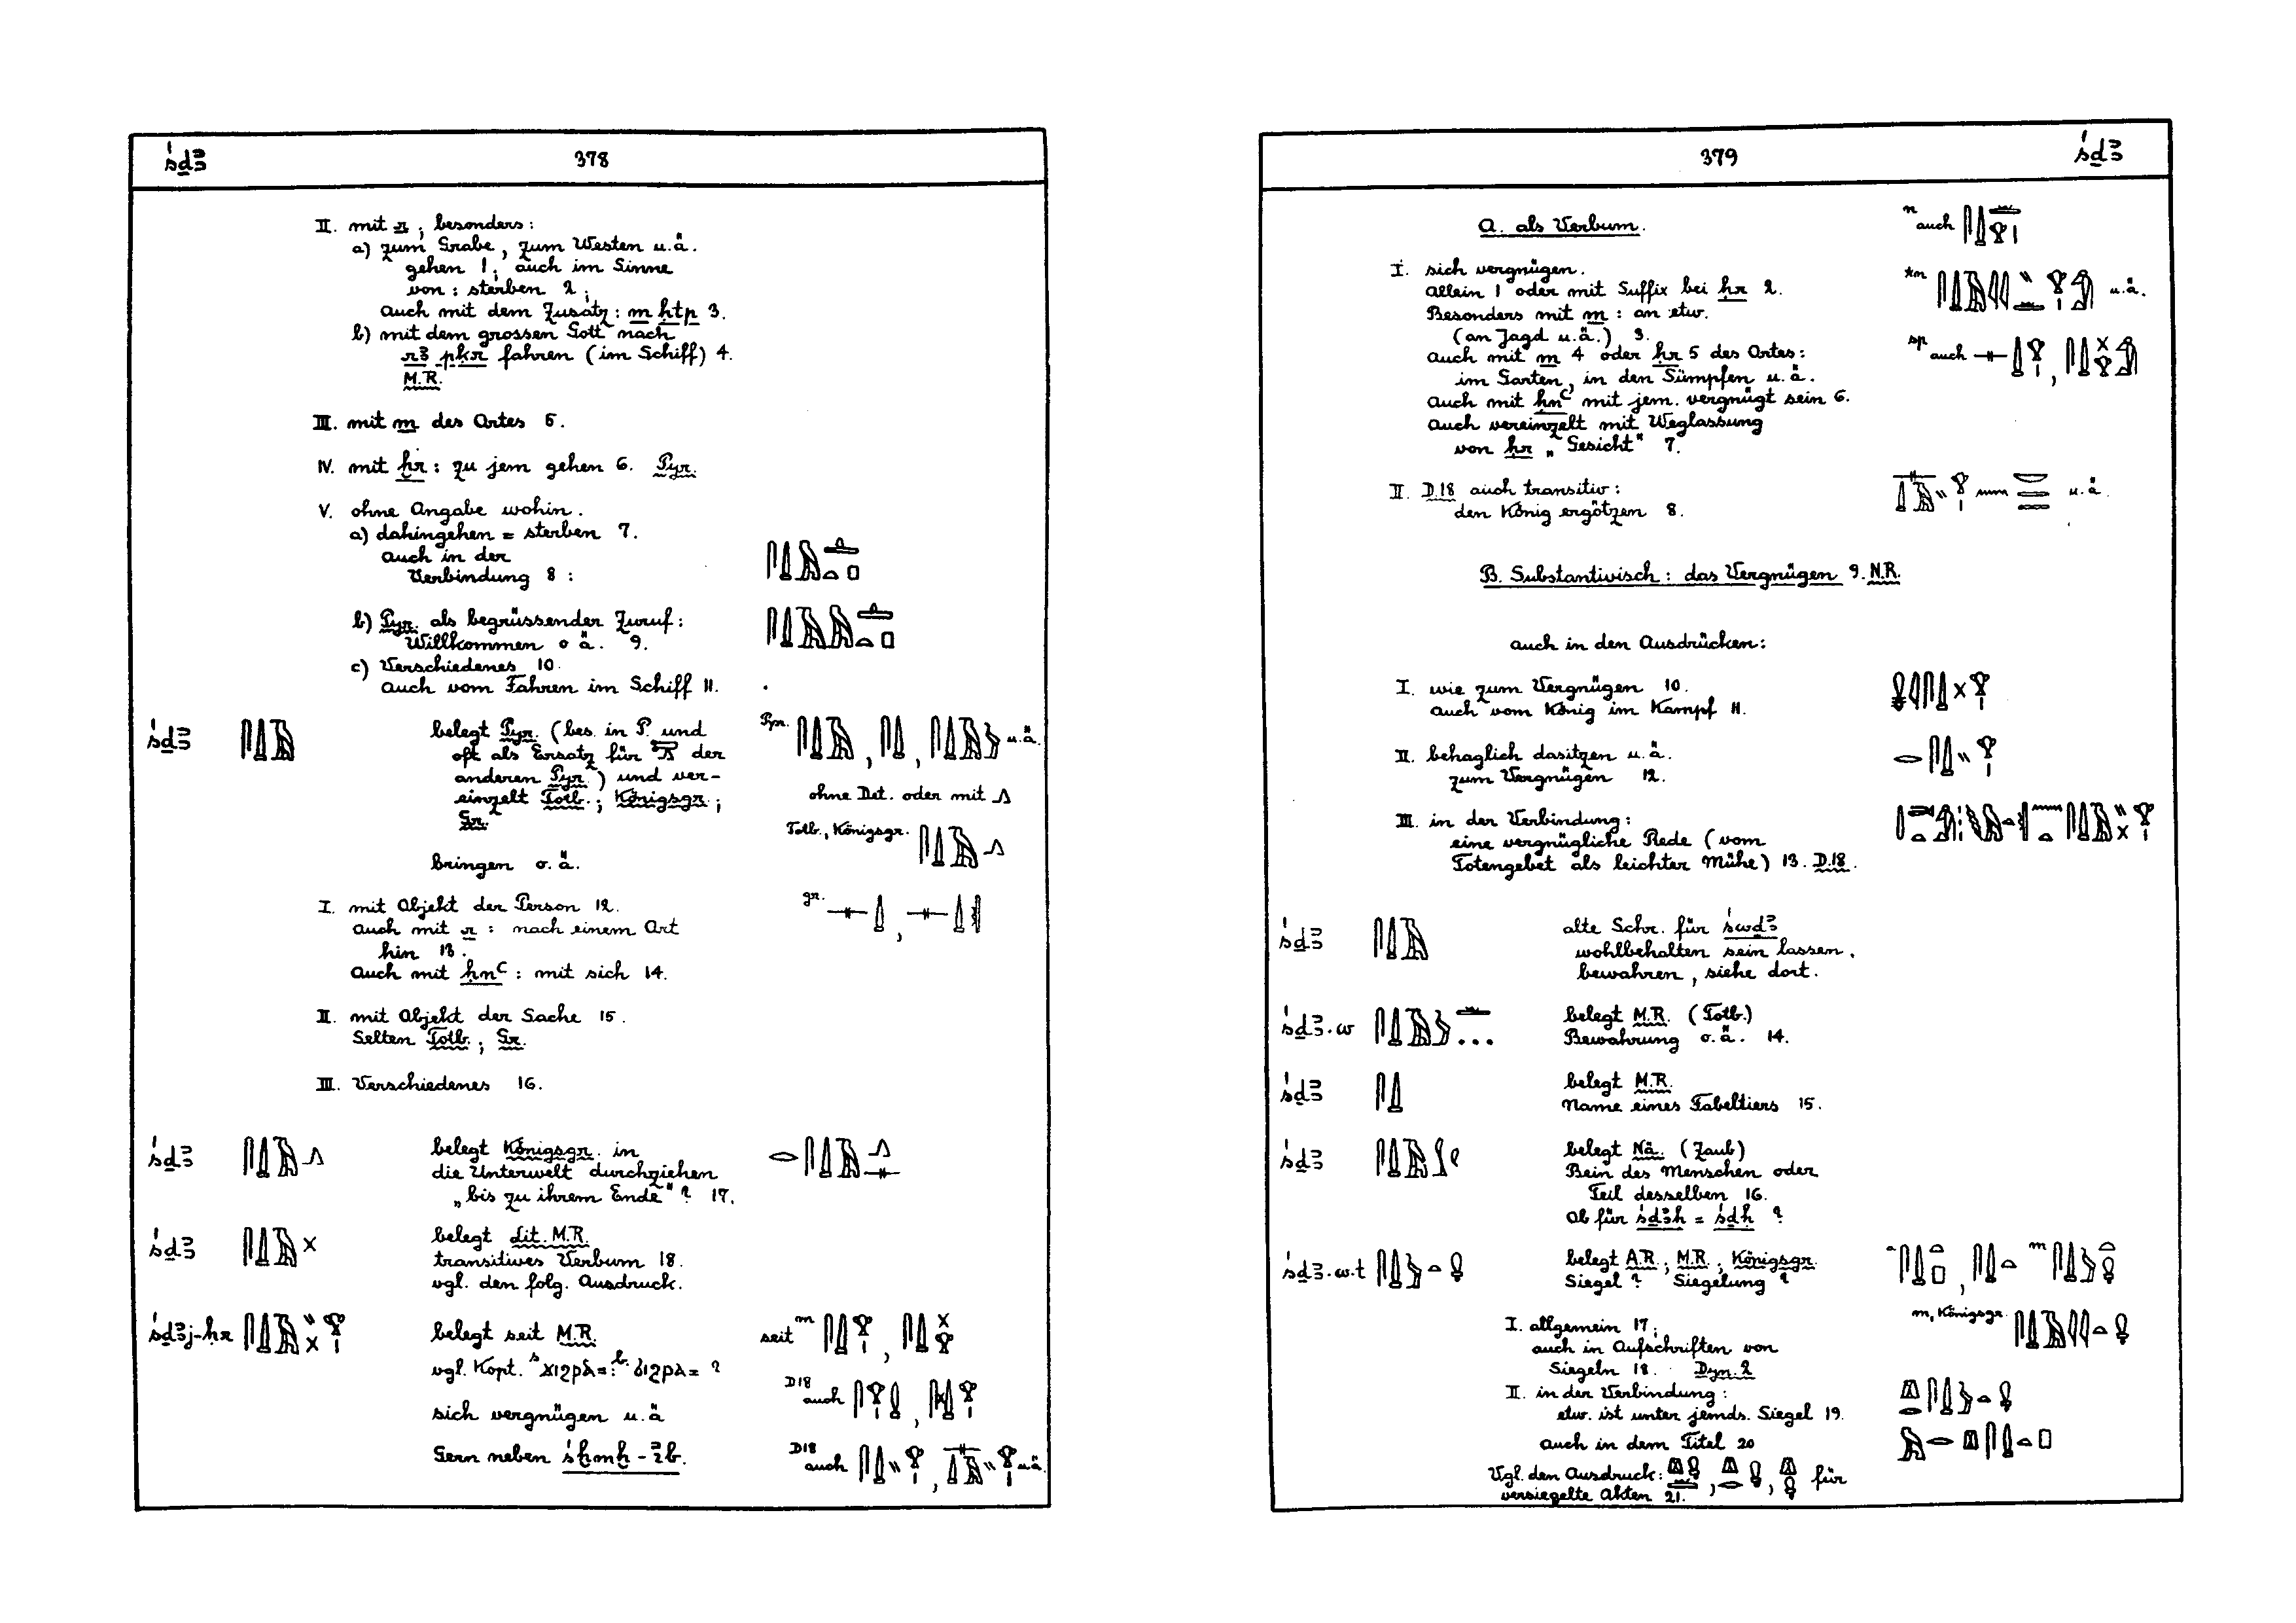 śḏꜣ
378
II. mit r; besonders:
a) zum Grabe, zum Westen u.ä.
gehen 1; auch im Sinne
von: sterben 2;
auch mit dem Zusatz: m ḥtp 3.
b) mit dem grossen Gott nach
rꜣ-pḳr fahren (im Schiff) 4.
M.R.
III. mit m des Ortes 5.
IV. mit ḫr: zu jem gehen 6. Pyr.
V. ohne Angabe wohin.
a) dahingehen = sterben 7.
auch in der
Verbindung 8:
b) Pyr. als begrüssender Zuruf:
Willkommen o ä. 9.
c) Verschiedenes 10.
auch vom Fahren im Schiff 11.
śḏꜣ
belegt Pyr. (bes. in P. und
oft als Ersatz für der
anderen Pyr.) und ver-
einzelt Totb.; Königsgr.;
Gr.
bringen o.ä.
Pyr. , , u.ä.
ohne Det. oder mit
Totb., Königsgr.
gr. ,
I. mit Objekt der Person 12.
auch mit r: nach einem Ort
hin 13.
auch mit ḥnꜥ: mit sich 14.
II. mit Objekt der Sache 15.
Selten Totb.; Gr.
III. Verschiedenes 16.
śḏꜣ
belegt Königsgr. in
die Unterwelt durchziehen
„bis zu ihrem Ende"? 17.
śḏꜣ
belegt Lit. M.R.
transitives Verbum 18.
vgl. den folg. Ausdruck.
śḏꜣj-ḥr
belegt seit M.R.
vgl. Kopt. ?
sich vergnügen u.ä
Gern neben śḫmḫ-ꜣb.
seit m ,
D18 auch ,
D18 auch , u.ä.
379
śḏꜣ
A. als Verbum.
n auch
I. sich vergnügen.
allein 1 oder mit Suffix bei ḥr 2.
Besonders mit m: an etw.
(an Jagd u.ä.) 3.
auch mit m 4 oder ḥr 5 des Ortes:
im Garten, in den Sümpfen u.ä.
auch mit ḥnꜥ mit jem. vergnügt sein 6.
auch vereinzelt mit Weglassung
von ḥr „Gesicht" 7.
u.ä.
sp auch ,
II. D.18 auch transitiv:
den König ergötzen 8.
u.ä.
B. Substantivisch: das Vergnügen 9. N.R.
auch in den Ausdrücken:
I. wie zum Vergnügen 10.
auch vom König im Kampf 11.
II. behaglich dasitzen u.ä.
zum Vergnügen 12.
III. in der Verbindung:
eine vergnügliche Rede (vom
Totengebet als leichter Mühe) 13. D.18.
śḏꜣ
alte Schr. für śwḏꜣ
wohlbehalten sein lassen.
bewahren, siehe dort.
śḏꜣ.w
belegt M.R. (Totb.)
Bewahrung o.ä. 14.
śḏꜣ
belegt M.R.
Name eines Fabeltiers 15.
śḏꜣ
belegt Nä. (Zaub)
Bein des Menschen oder
Teil desselben 16.
Ob für śḏꜣḥ = śdḥ ?
śḏꜣ.w.t
belegt A.R.; M.R.; Königsgr.
Siegel? Siegelung?
I. allgemein 17;
auch in Aufschriften von
Siegeln 18. Dyn. 2
m, Königsgr.
II. in der Verbindung:
etw. ist unter jemds. Siegel 19.
auch in dem Titel 20
Vgl. den Ausdruck: , , für
versiegelte Akten 21.